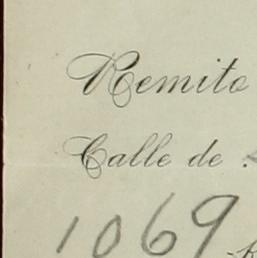 Remito
Calle de
1069